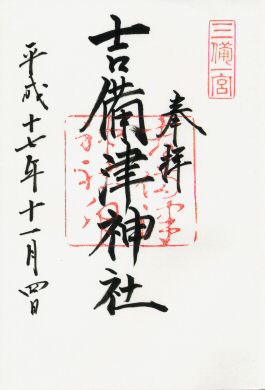 三備一宮
奉拝
吉備津神社
平成十七年十一月四日